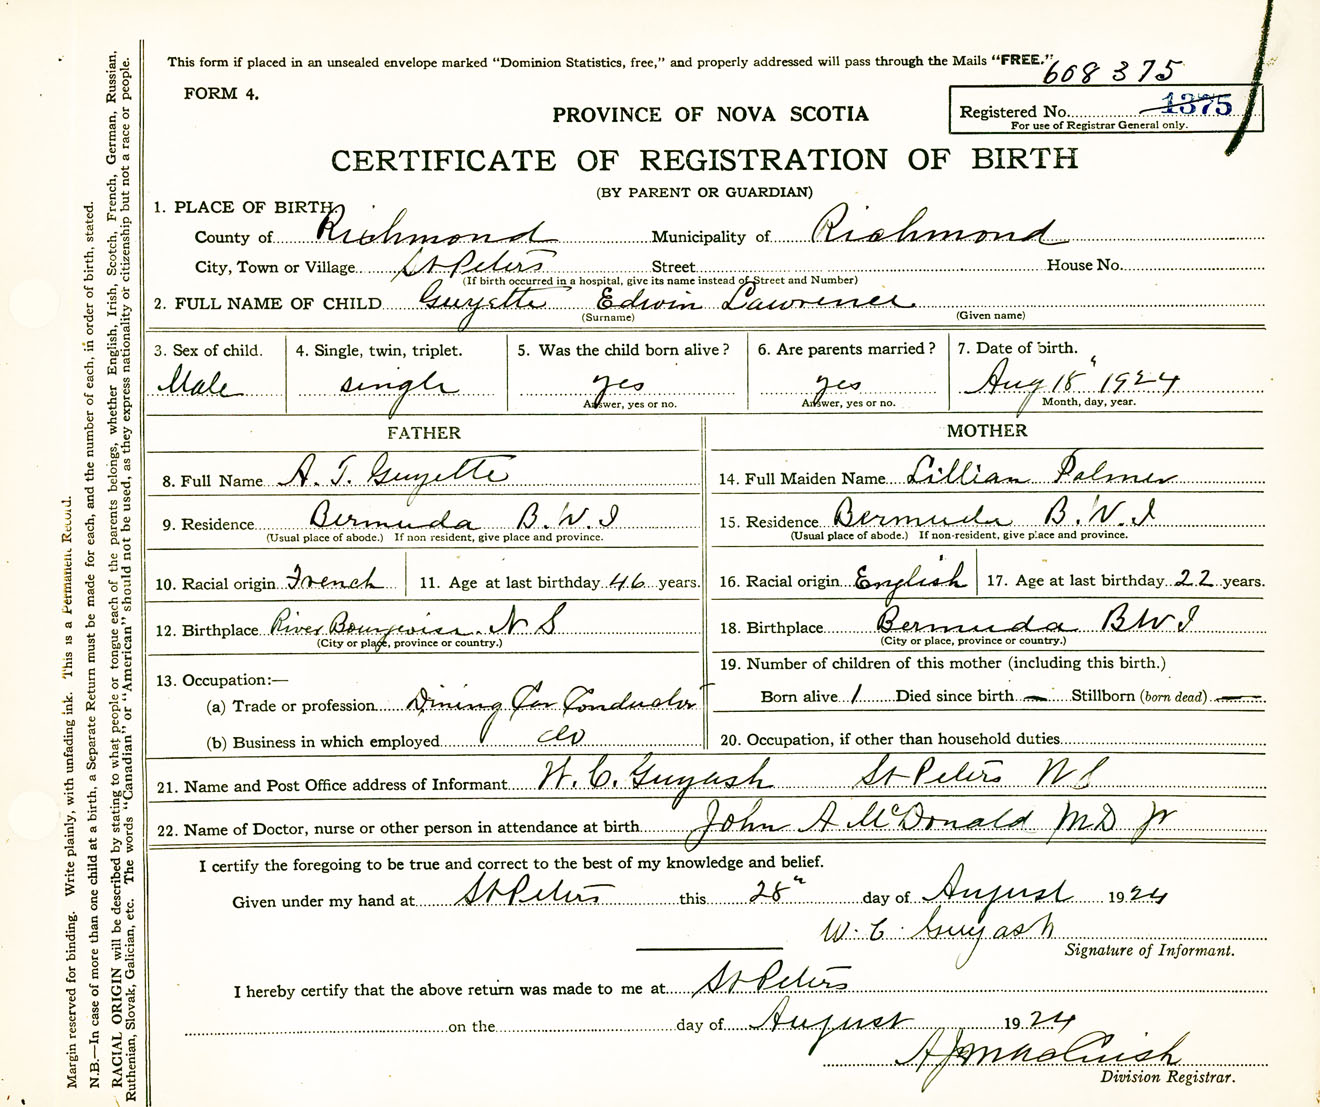 This form if placed in an unsealed envelope marked “Dominion Statistics, free,” and properly addressed will pass through the Mails “FREE.”
608375
FORM 4.
PROVINCE OF NOVA SCOTIA
Registered No. 1375
For use of Registrar General only.
CERTIFICATE OF REGISTRATION OF BIRTH
(BY PARENT OR GUARDIAN)
1. PLACE OF BIRTH
County of Richmond Municipality of Richmond
City, Town or Village St Peters Street House No.
(If birth occurred in a hospital, give its name instead of Street and Number)
2. FULL NAME OF CHILD Guyette Edwin Lawrence
(Surname) (Given name)
3. Sex of child. 4. Single, twin, triplet. 5. Was the child born alive? 6. Are parents married? 7. Date of birth.
Male single yes yes Aug 18" 1924
Answer, yes or no. Answer, yes or no. Month, day, year.
FATHER MOTHER
8. Full Name A. T. Guyette 14. Full Maiden Name Lillian Palmer
9. Residence Bermuda B.W.I 15. Residence Bermuda B.W.I
(Usual place of abode.) If non resident, give place and province. (Usual place of abode.) If non-resident, give place and province.
10. Racial origin French 11. Age at last birthday 46 years. 16. Racial origin English 17. Age at last birthday 22 years.
12. Birthplace River Bourgeois N S 18. Birthplace Bermuda BWI
(City or place, province or country.) (City or place, province or country.)
13. Occupation:— 19. Number of children of this mother (including this birth.)
(a) Trade or profession Dining Car Conductor Born alive 1 Died since birth — Stillborn (born dead) —
(b) Business in which employed do 20. Occupation, if other than household duties
21. Name and Post Office address of Informant W. C. Guyash St Peters N S
22. Name of Doctor, nurse or other person in attendance at birth John A McDonald MD Jr
I certify the foregoing to be true and correct to the best of my knowledge and belief.
Given under my hand at St Peters this 28" day of August 1924
W. C. Guyash
Signature of Informant.
I hereby certify that the above return was made to me at St Peters
on the day of August 1924
Division Registrar.
Margin reserved for binding. Write plainly, with unfading ink. This is a Permanent Record.
N.B.—In case of more than one child at a birth, a Separate Return must be made for each, and the number of each, in order of birth, stated.
RACIAL ORIGIN will be described by stating to what people or tongue each of the parents belongs, whether English, Irish, Scotch, French, German, Russian,
Ruthenian, Slovak, Galician, etc. The words “Canadian” or “American” should not be used, as they express nationality or citizenship but not a race or people.